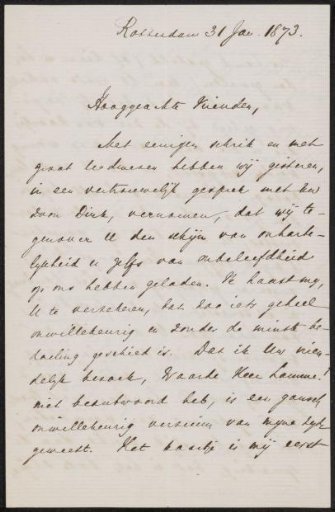 Rotterdam 31 Jan. 1873.
Hooggeachte Vrienden,
Met eenigen schrik en met
groot leedwezen hebben wij gisteren,
in een vertrouwelijk gesprek met Uw
zoon Dirk, vernomen, dat wij te-
genover U den schijn van onharte-
lijkheid en zelfs van onbeleefdheid
op ons hebben geladen. Ik haast mij,
U te verzekeren, dat zoo iets geheel
onwillekeurig en zonder de minste be-
doeling geschied is. Dat ik Uw vrien-
delijk bezoek, Waarde Heer Lamme!
niet beantwoord heb, is een gansch
onwillekeurig verzuim van mijne zijde
geweest. Het kaartje is mij eerst